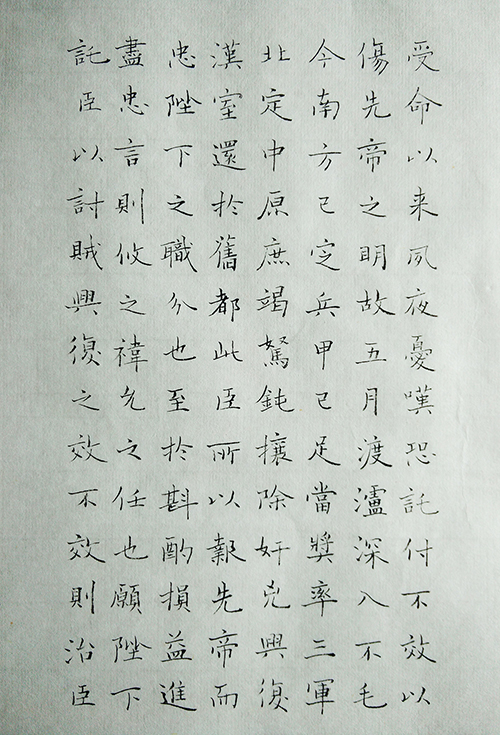 受命以来夙夜憂嘆恐託付不效以
傷先帝之明故五月渡瀘深入不毛
今南方已定兵甲已足當獎率三軍
北定中原庶竭駑鈍攘除奸兇興復
漢室還於舊都此臣所以報先帝而
忠陛下之職分也至於斟酌損益進
盡忠言則攸之禕允之任也願陛下
託臣以討賊興復之效不效則治臣